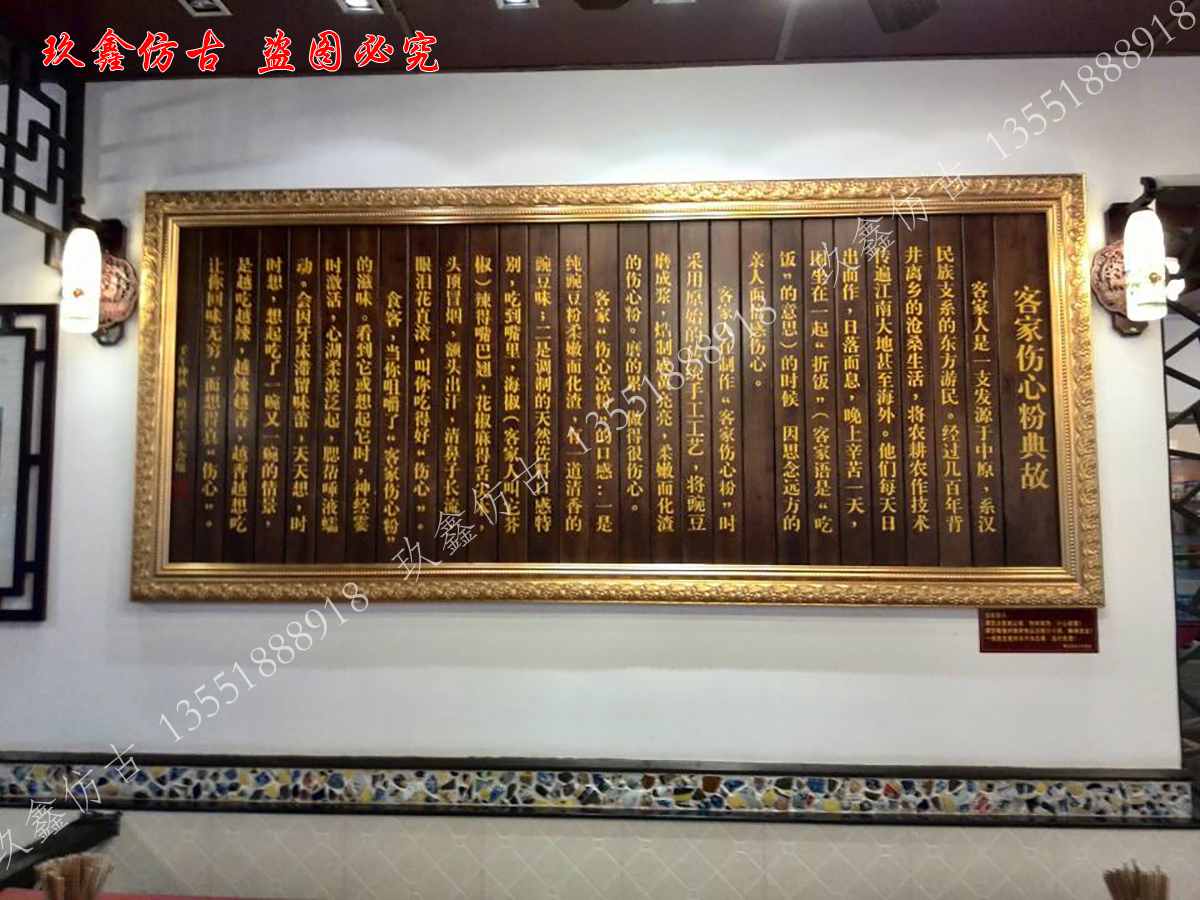 玖鑫仿古 盗图必究
客家伤心粉典故
客家人是一支发源于中原,系汉
民族支系的东方游民。经过几百年背
井离乡的沧桑生活,将农耕农作技术
传遍江南大地甚至海外。他们每天日
出而作,日落而息,晚上辛苦一天,
团坐在一起“折饭”(客家语是“吃
饭”的意思)的时候 因思念远方的
亲人而感伤心。
客家人制作“客家伤心粉”时
采用原始的纯手工工艺,将豌豆
磨成浆,精制成亮亮,柔嫩而化渣
的伤心粉。磨的累,做得很伤心。
客家“伤心凉粉”的口感:一是
纯豌豆粉柔嫩而化渣,有一道清香的
豌豆味;二是调制的天然佐料口感特
别,吃到嘴里,海椒(客家人叫芥
椒)辣得嘴巴翘,花椒麻得舌尖木,
头顶冒烟,额头出汗,清鼻子长流,
眼泪花直滚,叫你吃得好“伤心”。
食客,当你咀嚼了“客家伤心粉”
的滋味。看到它或想起它时,神经霎
时激活,心湖柔波泛起,腮帮唾液蠕
动。会因牙床滞留味蕾,天天想,时
时想,想起吃了一碗又一碗的情景,
是越吃越辣,越辣越香,越香越想吃
让你回味无穷,而想得真“伤心”。
玖鑫仿古 13551888918
玖鑫仿古 13551888918
玖鑫仿古 13551888918